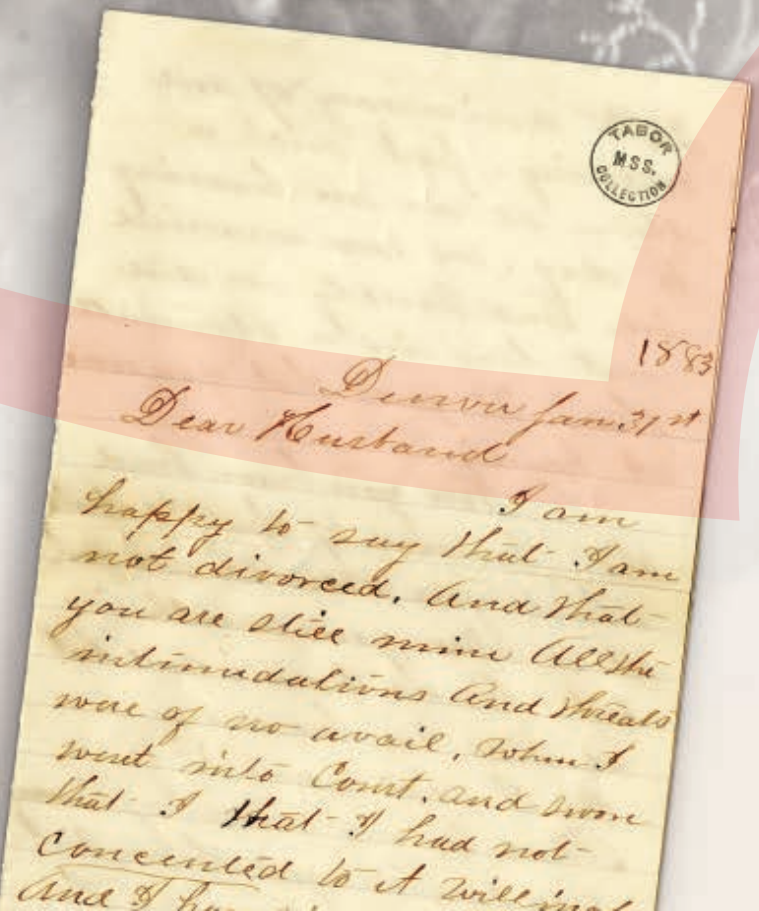 TABOR
MSS.
COLLECTION
1883
Denver Jan. 31st
Dear Husband
I am
happy to say that I am
not divorced. And that
you are still mine All the
intimudations And threats
were of no avail. when I
went into Court. and swore
that I that I had not
concented to it
And I